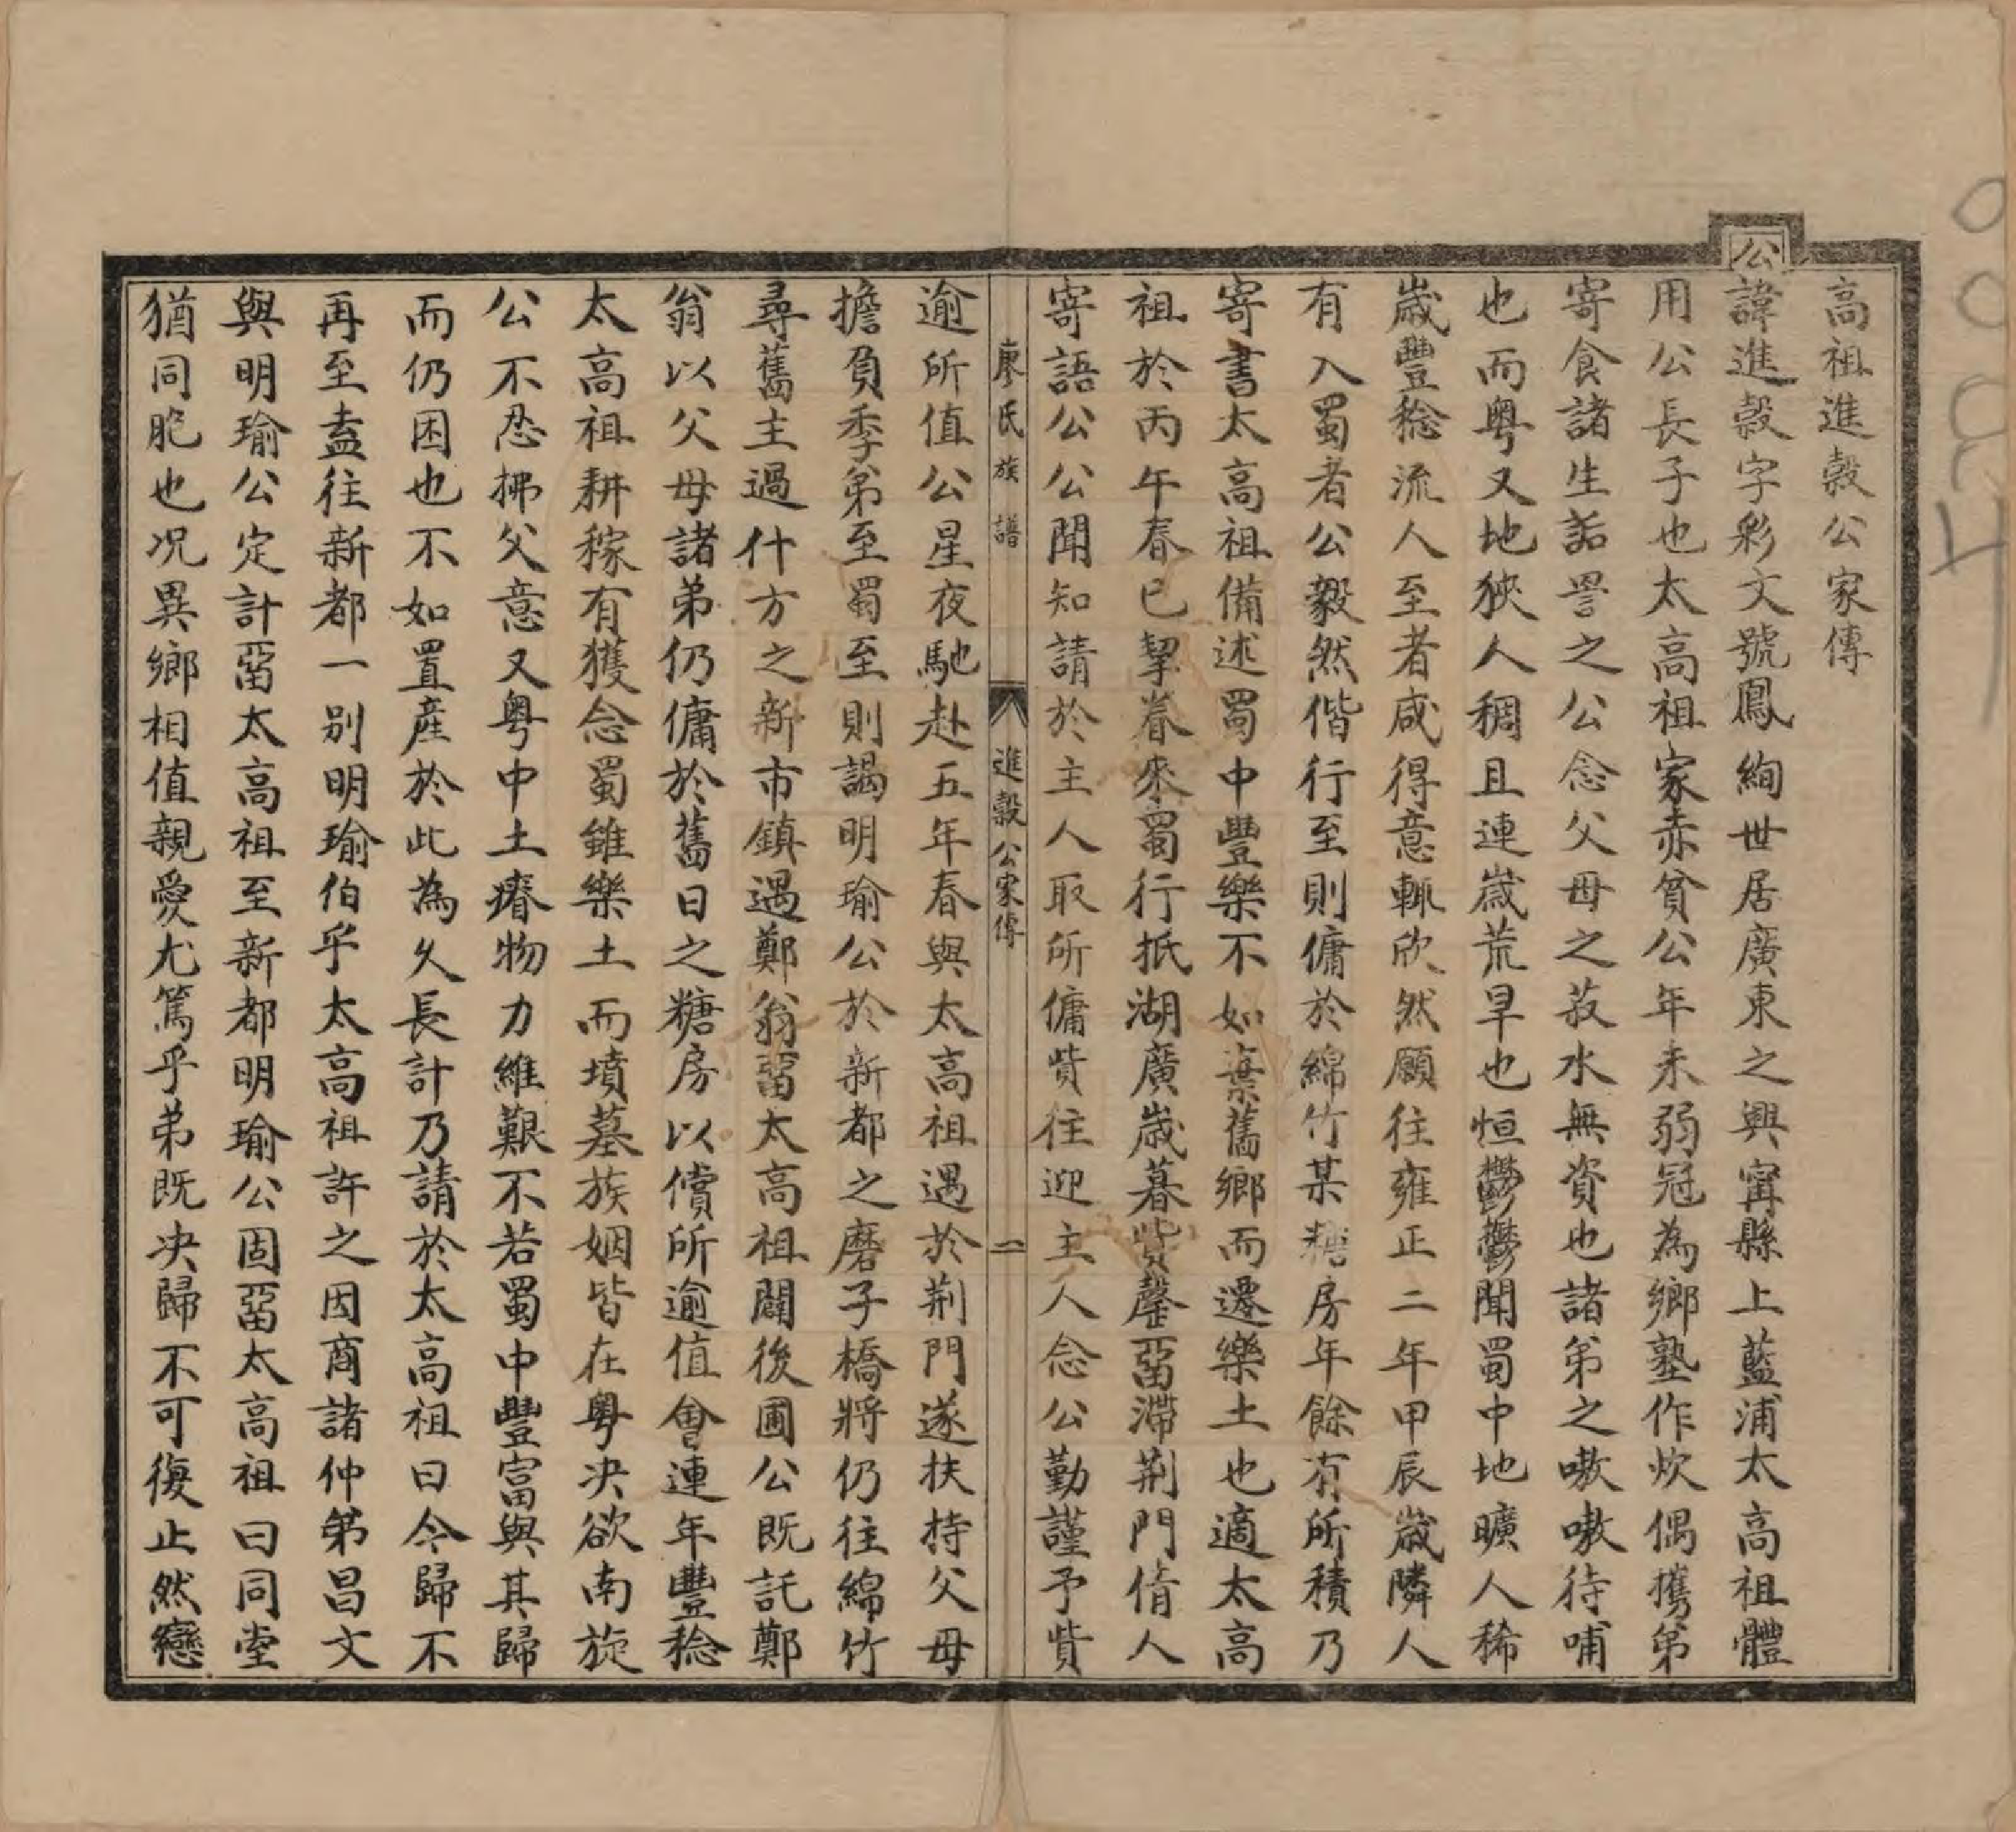 高祖進穀公家傳
公諱進穀字彩文號鳳絢世居廣東之興甯縣上藍浦太高祖體
用公長子也太高祖家赤貧公年未弱冠為鄉塾作炊偶攜弟
寄食諸生詬詈之公念父毋之菽水無資也諸弟之嗷嗷待哺
也而粵又地狹人稠且連歲荒旱也恒鬱鬱聞蜀中地曠人稀
歲豐稔流人至者咸得意輒欣然願往雍正二年甲辰歲隣人
有入蜀者公毅然偕行至則傭於綿竹某糖房年餘有所積乃
寄書太高祖備述蜀中豐樂不如棄舊鄉而遷樂土也適太高
祖於丙午春已挈眷來蜀行抵湖廣歲暮貲罄畱滯荆門倩人
寄語公公聞知請於主人取所傭貲往迎主人念公勤謹予貲
廖氏族譜 進穀公家傳 一
逾所值公星夜馳赴五年春與太高祖遇於荆門遂扶持父母
擔負季弟至蜀至則謁明瑜公於新都之磨子橋將仍往綿竹
尋舊主過什方之新市鎮遇鄭翁畱太高祖闢後圃公既託鄭
翁以父母諸弟仍傭於舊日之糖房以償所逾值會連年豐稔
太高祖耕稼有獲念蜀雖樂土而墳墓族姻皆在粵决欲南旋
公不忍拂父意又粵中土瘠物力維艱不若蜀中豐富與其歸
而仍困也不如置産於此為久長計乃請於太高祖曰今歸不
再至盍往新都一别明瑜伯乎太高祖許之因商諸仲弟昌文
與明瑜公定計畱太高祖至新都明瑜公固畱太高祖曰同堂
猶同胞也况異鄉相值親愛尤篤乎弟既决歸不可復止然戀